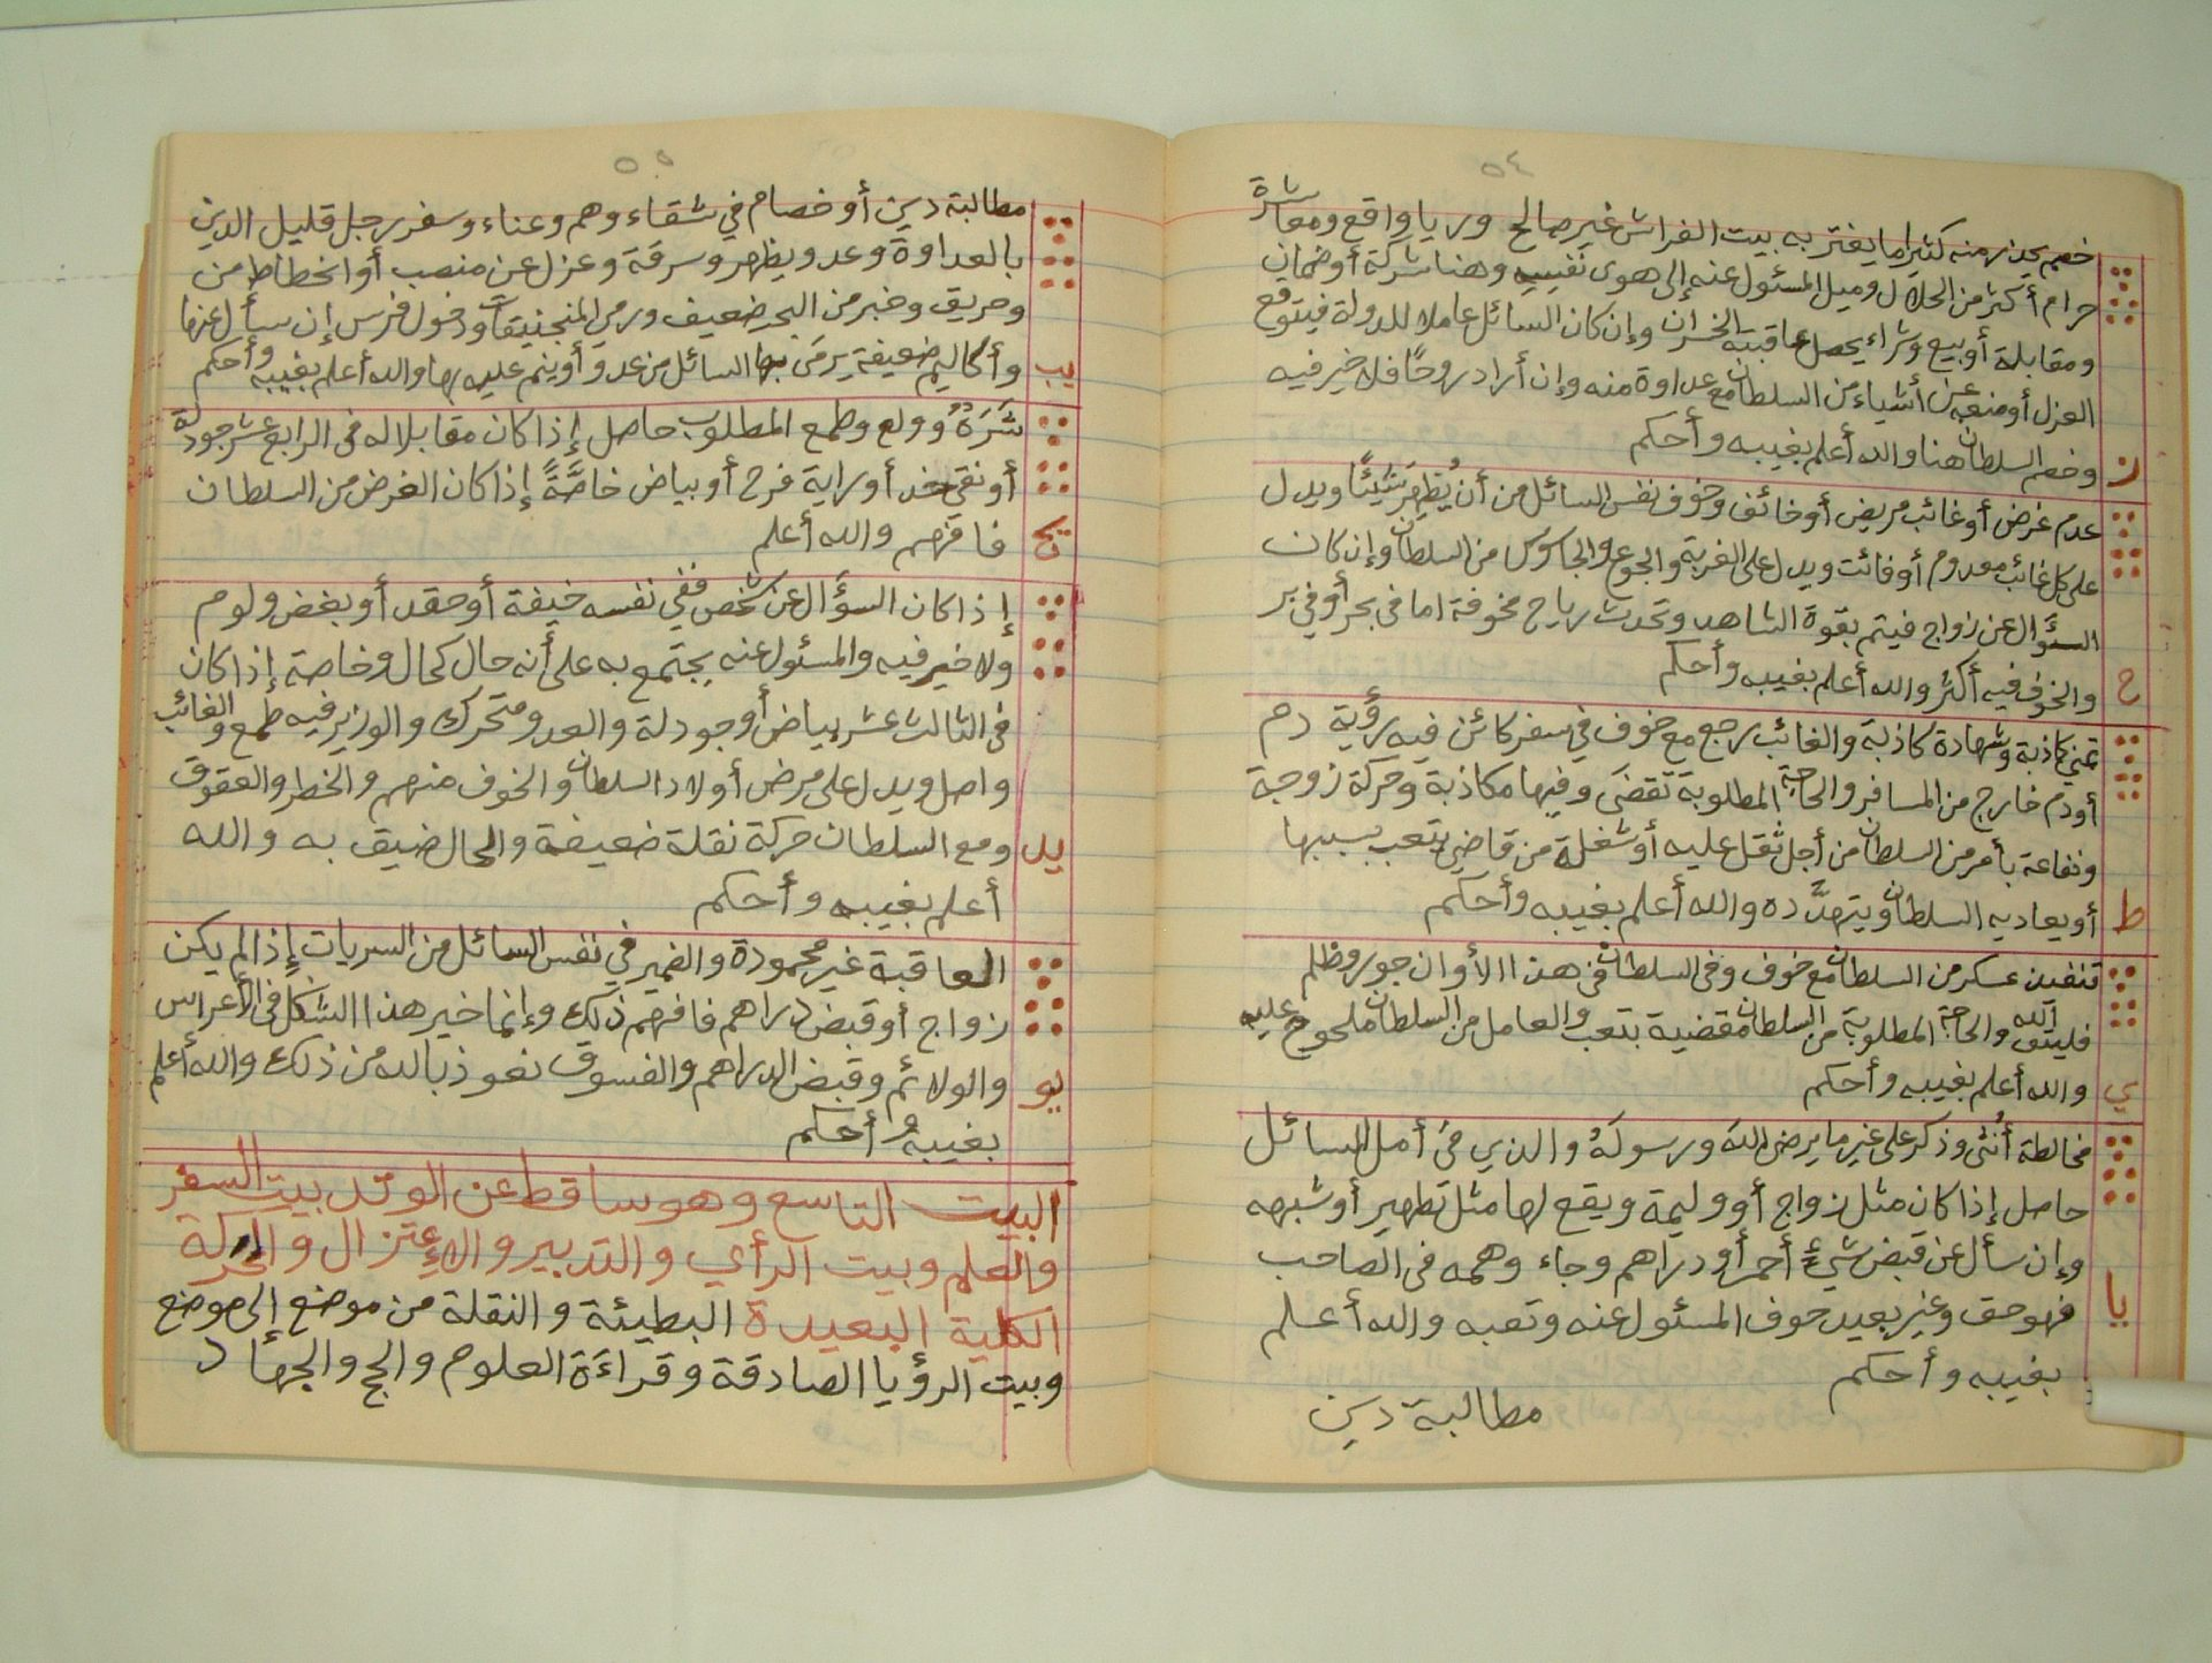 ٥٤
خصم يحذر منه كثيرا ما يغتر به بيت الفراش غير صالح وريا واقع ومعاشرة
حرام أكثر من الحلال وميل المسئول عنه إلى هوى نفسه وهنا شركة أو ضمان
ومقابلة أو بيع وشراء يحصل عاقبته الخسران وإن كان السائل عاملا للدولة فيتوقع
العزل أو منعه عن أشياء من السلطان مع عداوة منه وإن أراد روحًا فلا خير فيه
ز وخصم السلطان هنا والله أعلم بغيبه وأحكم
عدم غرض أو غائب مريض أو خائف وخوف نفس السائل من أن يُظهِرَ شيئًا ويدل
على كل غائب معدوم أو فائت ويدل على الغربة والجوع والجاسوس من السلطان وإن كان
السؤال عن زواج فيتم بقوة الشاهد وتحدث رياح مخوفة اما في بحر أو في بر
ح والخوف فيه أكثر والله أعلم بغيبه وأحكم
تمني كاذبة وشهادة كاذبة والغائب يرجع مع خوف في سفر كائن فيه رؤية دم
أو دم خارج من المسافر والحاجة المطلوبة تقضى وفيها مكاذبة وحركة زوجة
وشفاعة بأمر من السلطان من أجل ثقل عليه أو شغلة من قاضي يتعب بسببها
ط أو يعاديه السلطان ويتهدَّده والله أعلم بغيبه وأحكم
تنفيذ عسكر من السلطان مع خوف وفى السلطان فى هذا الأوان جور وظلم
فليتق الله والحاجة المطلوبة من السلطان مقضية بتعب والعامل من السلطان ملحوح عليه
ي والله أعلم بغيبه وأحكم
مخالطة أُنثى وذكر على غير ما يرضى الله ورسولهُ والذي فى أمل السائل
حاصل إذا كان مثل زواج أو وليمة ويقع لها مثل تطهير أو شبهه
وإن سأل عن قبض شيءٍ أحمر أو دراهم وجاء وهمه فى الصاحب
يا فهو حق وغير بعيد خوف المسئول عنه وتعبه والله أعلم
بغيبه وأحكم
مطالبة دين
٥٥
مطالبة دين أو خصام في شقاء وهم وعناء وسفر رجل قليل الدين
بالعداوة وعدو يظهر وسرقة وعزل عن منصب أو انحطاط من
وحريق وخبر من البحر ضعيف ورمي المنجنيقات ودخول فرس إن سأل عنها
يب وأكاليم ضعيفة يرمى بها السائل من عدو أو ينم عليه بها والله أعلم بغيبه وأحكم
شَرَهٌ وولع وطمع المطلوب حاصل إذا كان مقابلا له فى الرابع عشر جودلة
أو نقي خد أو راية فرح أو بياض خاصَّةً إذا كان الغرض من السلطان
يج فافهم والله أعلم
إذا كان السؤال عن شخص ففي نفسه خيفة أو حقد أو بغض ولوم
ولا خير فيه والمسئول عنه يجتمع به على أنه حال كحال وخاصة إذا كان
فى الثالث عشر بياض أو جودلة والعدو متحرك والوزير فيه طمع والغائب
واصل ويدل على مرض أولاد السلطان والخوف منهم والخطر والعقوق
يد ومع السلطان حركة نقلة ضعيفة والحال ضيق به والله
أعلم بغيبه وأحكم
العاقبة غير محمودة والضمير في نفس السائل من السريات إذا لم يكن
زواج أو قبض دراهم فافهم ذلك وإنما خير هذا الشكل فى الأعراس
يو والولائم وقبض الدراهم والفسوق نعوذ بالله من ذلك والله أعلم
بغيبه وأحكم
البيت التاسع وهو ساقط عن الوتد بيت السفر
والعلم وبيت الرأي والتدبير والإعتزال والحركة
الكلية البعيدة البطيئة والنقلة من موضع إلى موضع
وبيت الرؤيا الصادقة وقراءَة العلوم والحج والجهاد